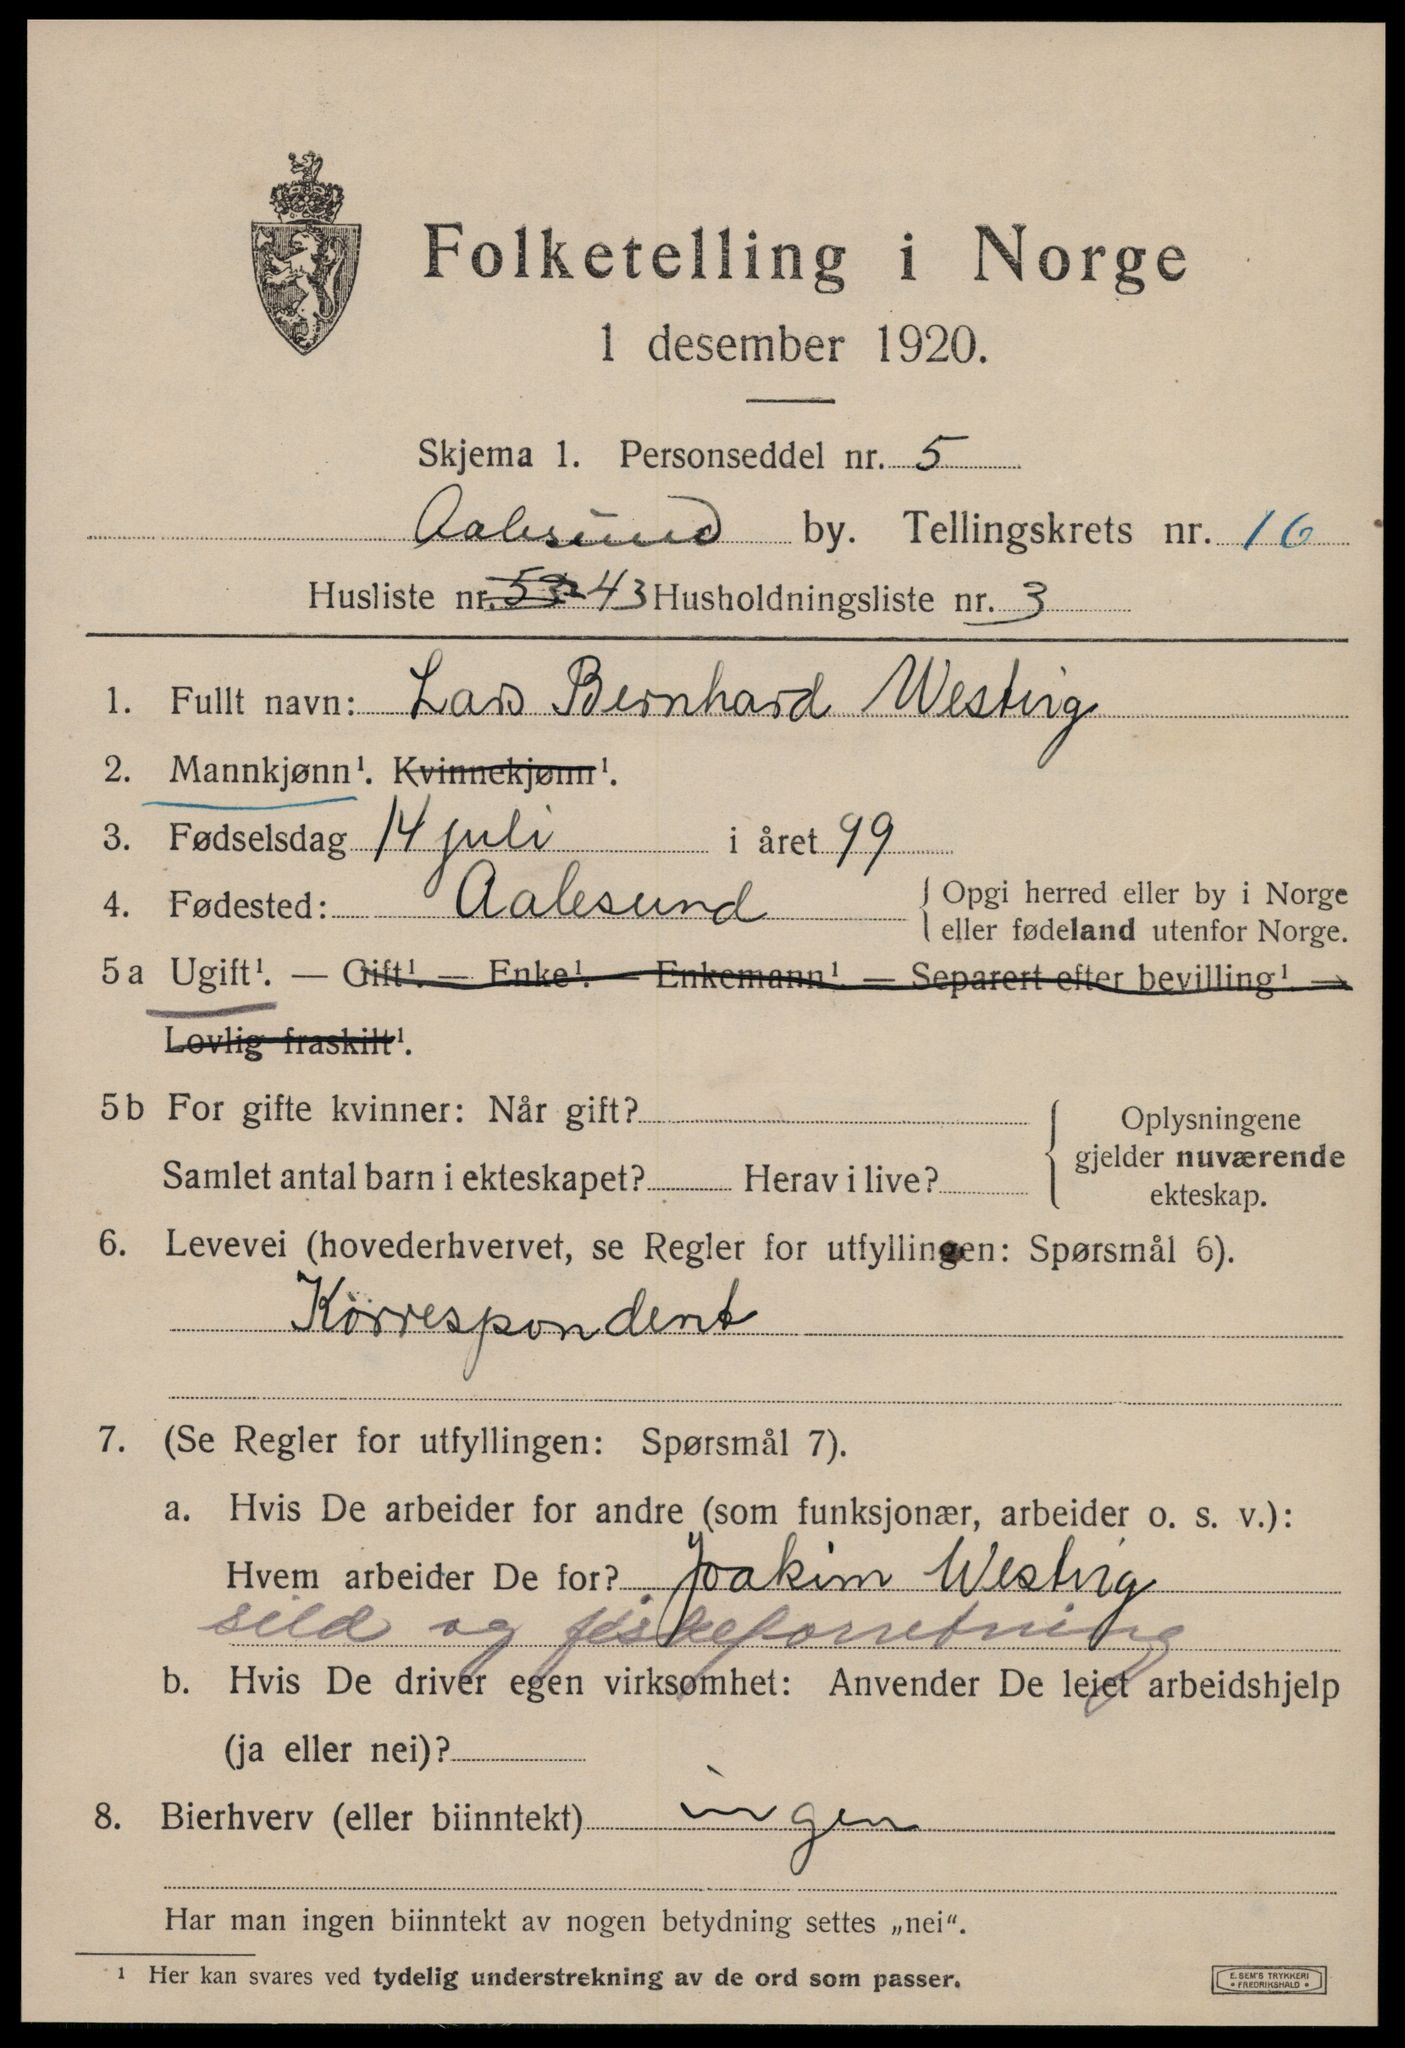 Folketelling i Norge
1 desember 1920.
Skjema 1. Personseddel nr. 5
Aalesund by. Tellingskrets nr. 16
Husliste nr. 53 43 Husholdningsliste nr. 3
1. Fullt navn: Lars Bernhard Westvig
2. Mannkjønn¹. Kvinnekjønn¹.
3. Fødselsdag 14 juli i året 99
4. Fødested: Aalesund { Opgi herred eller by i Norge
eller fødeland utenfor Norge.
5 a Ugift¹. — Gift¹. — Enke¹. — Enkemann¹. — Separert efter bevilling¹. —
Lovlig fraskilt¹.
5 b For gifte kvinner: Når gift? { Oplysningene
gjelder nuværende
Samlet antal barn i ekteskapet? Herav i live?
ekteskap.
6. Levevei (hovederhvervet, se Regler for utfyllingen: Spørsmål 6).
Korrespondent
7. (Se Regler for utfyllingen: Spørsmål 7).
a. Hvis De arbeider for andre (som funksjonær, arbeider o. s. v.):
Hvem arbeider De for? Joakim Westvig
sild og fiskeforretning
b. Hvis De driver egen virksomhet: Anvender De leiet arbeidshjelp
(ja eller nei)?
8. Bierhverv (eller biinntekt) ingen
Har man ingen biinntekt av nogen betydning settes „nei“.
¹ Her kan svares ved tydelig understrekning av de ord som passer.
E. SEM'S TRYKKERI
• FREDRIKSHALD •